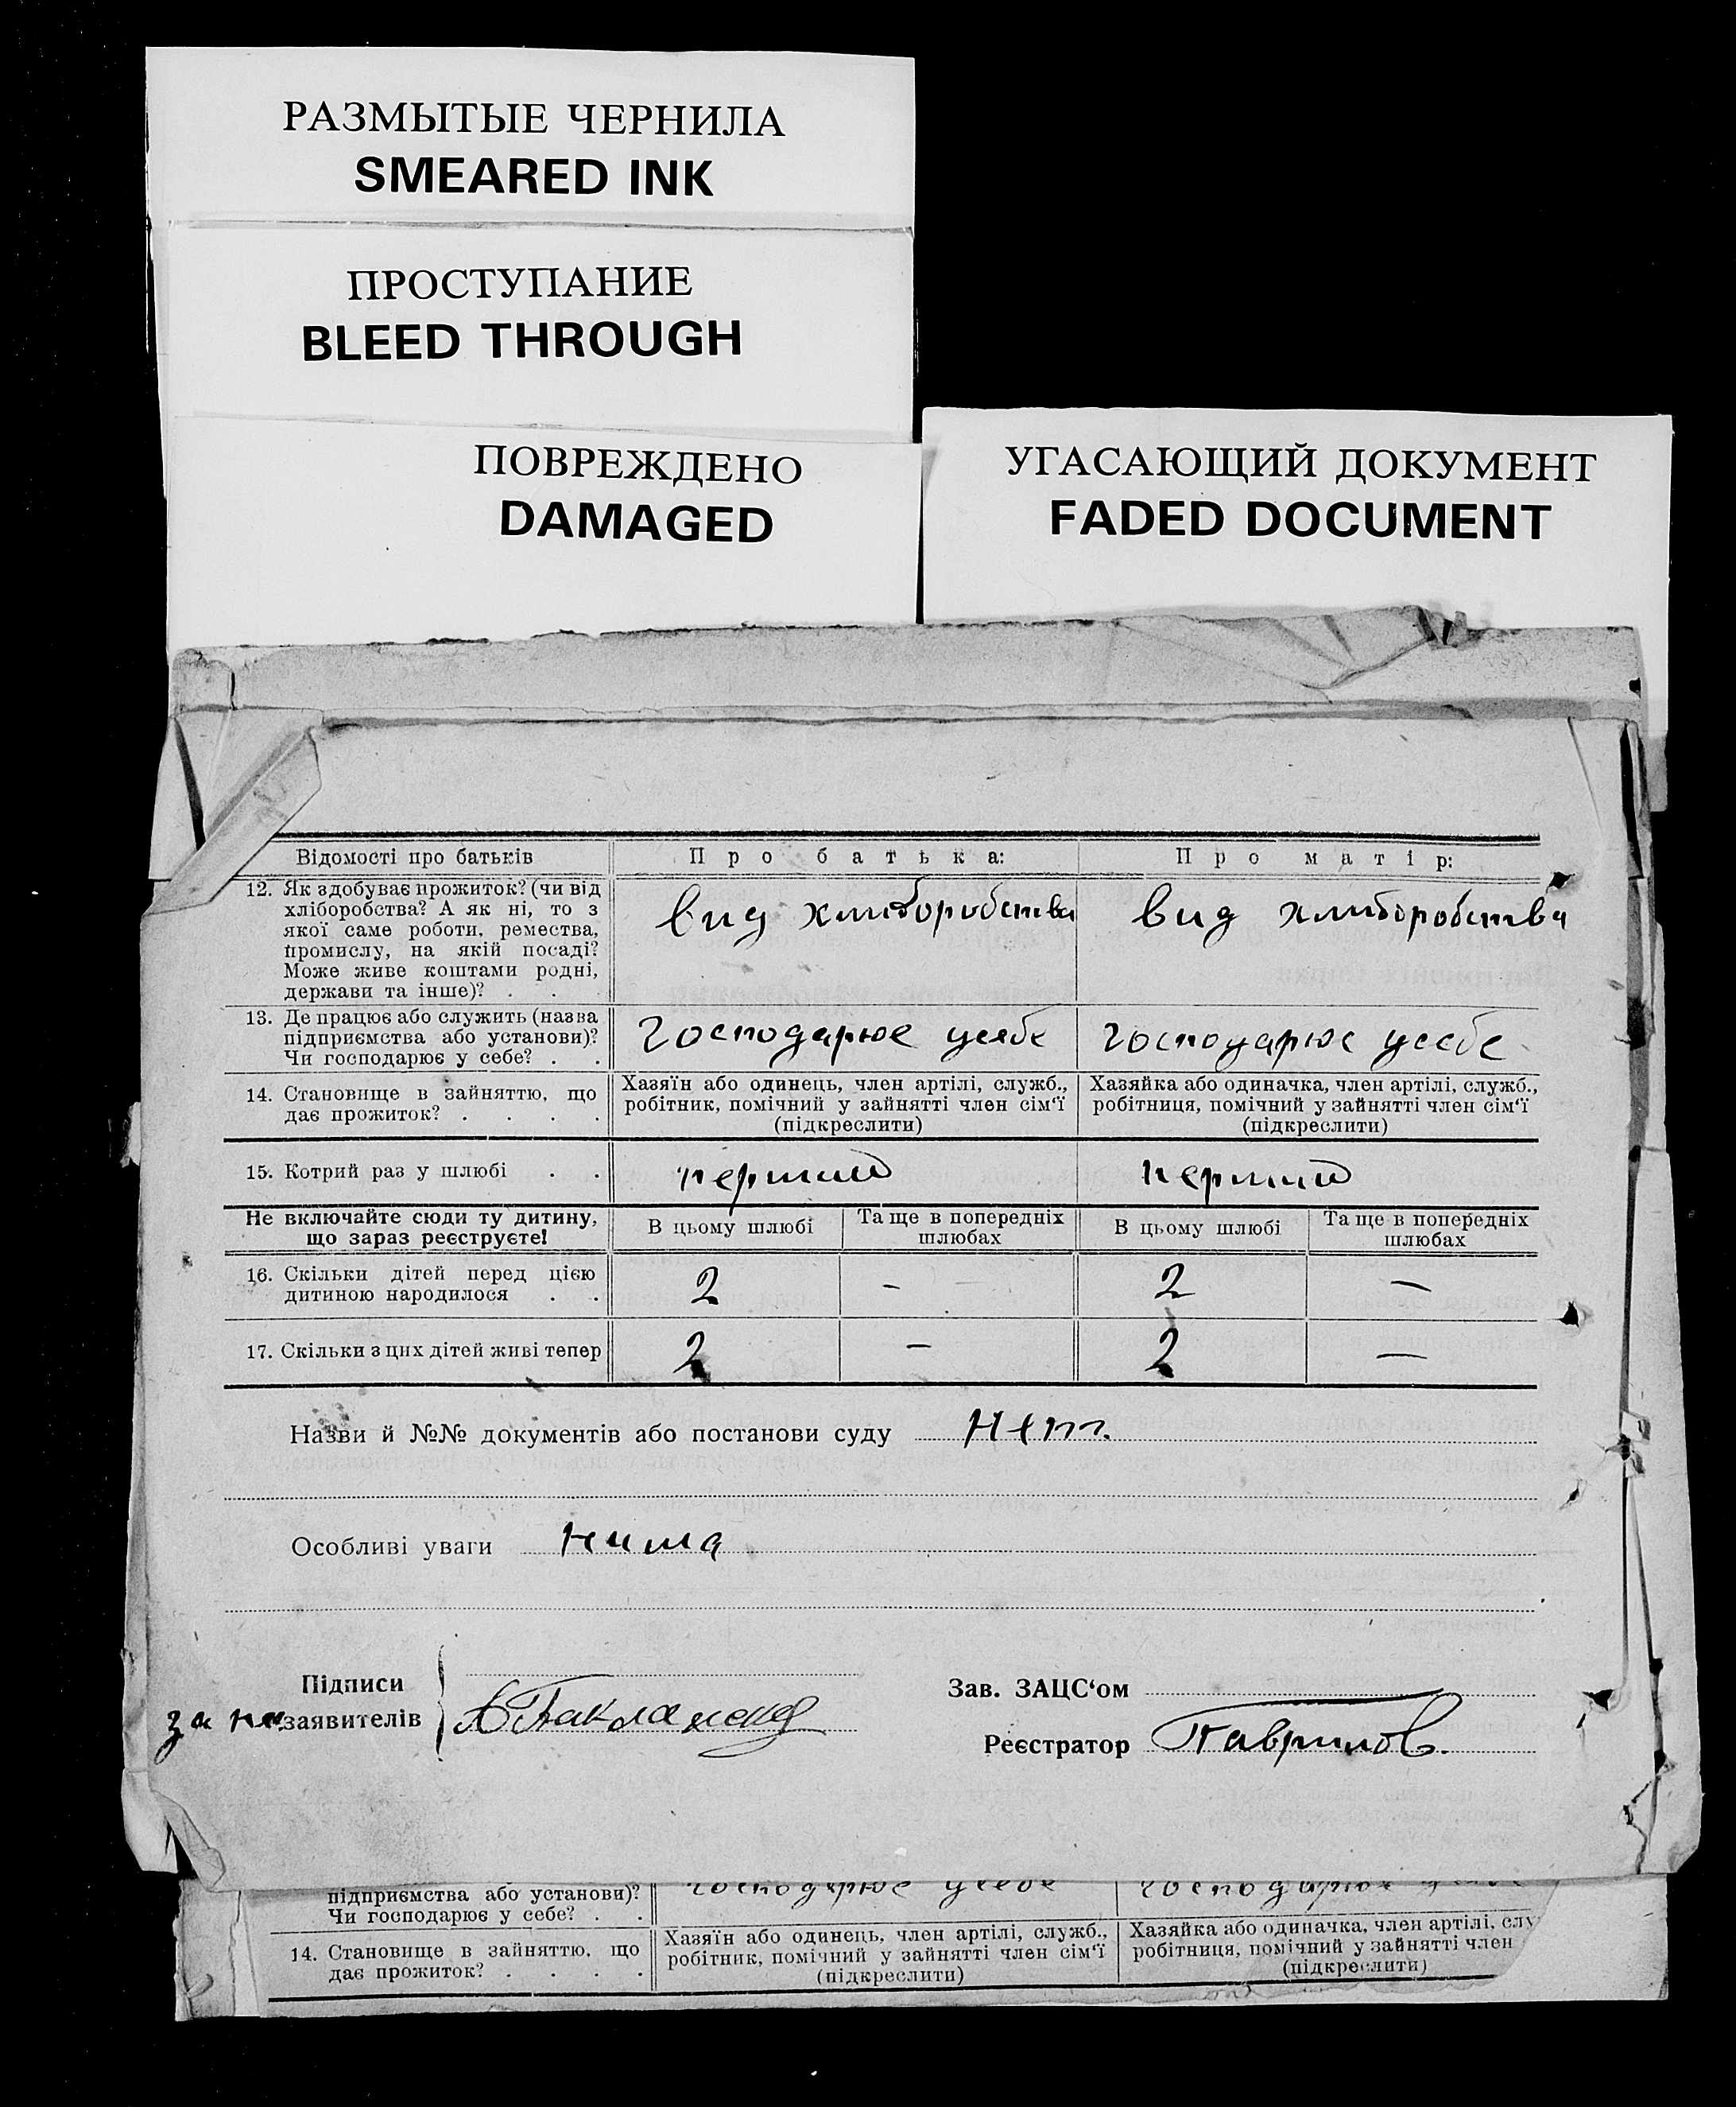 РАЗМЫТЫЕ ЧЕРНИЛА
SMEARED INK
ПРОСТУПАНИЕ
BLEED THROUGH
ПОВРЕЖДЕНО
DAMAGED
УГАСАЮЩИЙ ДОКУМЕНТ
FADED DOCUMENT
Відомості про батьків
Про батька:
Про матір:
12. Як здобуває прожиток? (чи від
хліборобства? А як ні, то з
якої саме роботи, ремества,
промислу, на якій посаді?
Може живе коштами родні,
держави та інше)? . .
вид хлиборобства
вид хлиборобства
13. Де працює або служить (назва
підприємства або установи)?
Чи господарює у себе? . .
господарює усебе
господарює усебе
14. Становище в зайняттю, що
дає прожиток? . . . .
Хазяїн або одинець, член артілі, служб.,
робітник, помічний у зайнятті член сім‘ї
(підкреслити)
Хазяйка або одиначка, член артілі, служб.,
робітниця, помічний у зайнятті член сім‘ї
(підкреслити)
15. Котрий раз у шлюбі . .
перший
перший
Не включайте сюди ту дитину,
що зараз реєструєте!
В цьому шлюбі
Та ще в попередніх
шлюбах
В цьому шлюбі
Та ще в попередніх
шлюбах
16. Скільки дітей перед цією
дитиною народилося . .
2
-
2
—
17. Скільки з цих дітей живі тепер
2
—
2
—
Назви й №№ документів або постанови суду нет.
Особливі уваги нима
Підписи
заявителів
за
Зав. ЗАЦС‘ом
Реєстратор Гаврилов.
підприємства або установи)?
Чи господарює у себе? . .
господарює усебе
14. Становище в зайняттю, що
дає прожиток? . . . .
Хазяїн або одинець, член артілі, служб.,
робітник, помічний у зайнятті член сім‘ї
(підкреслити)
Хазяйка або одиначка, член артілі,
робітниця, помічний у зайнятті член
(підкреслити)